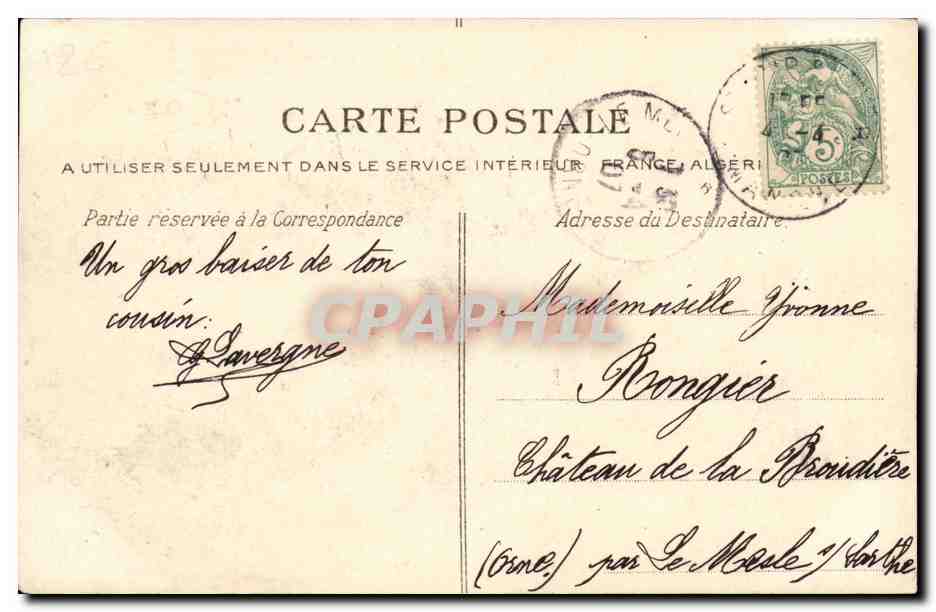 CARTE POSTALE
A UTILISER SEULEMENT DANS LE SERVICE INTÉRIEUR FRANCE, ALGÉRI
Partie réservée à la Correspondance
Adresse du Destinataire
Un gros baiser de ton
cousin:
G Lavergne
Mademoiselle Yvonne
Rongier
Château de la Broudière
(Orne.) par Le Mesle s/ Sarthe
CPAPHIL
5c
POSTES
07